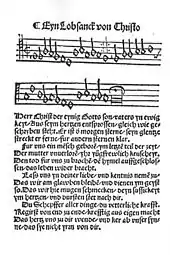 Eyn Lobsanck von Christo
Herr Christ der eynig Gotts son / vaters yn ewig
keyt / Aus seym hertzen entsprossen / gleich wie ge
schrieben steht / Er ist der morgen sterne / seyn glentze
streckt er ferne / fur andern sternen klar.
Fur uns ein mensch geboren / ym letzten teil der zeyt /
Der mutter
Den tod fur uns zu brochen / den hymel auffgeschlos
sen / das leben wider bracht.
Las uns yn deiner liebe / und kentnis nemen zu /
Das wir am glawben bleyben / und dienen ym geyst
so / Das wir hie mügen schmecken / deyn süssickeyt
ym hertzen / und dursten stet nach dir.
Du Schepffer aller dinge / du vetterliche krafft.
Regirst von end zu ende / krefftig aus eigen macht
Das hertz uns zu dir wende / und ker ab unser synne
/ das sye nicht yrn von dir.